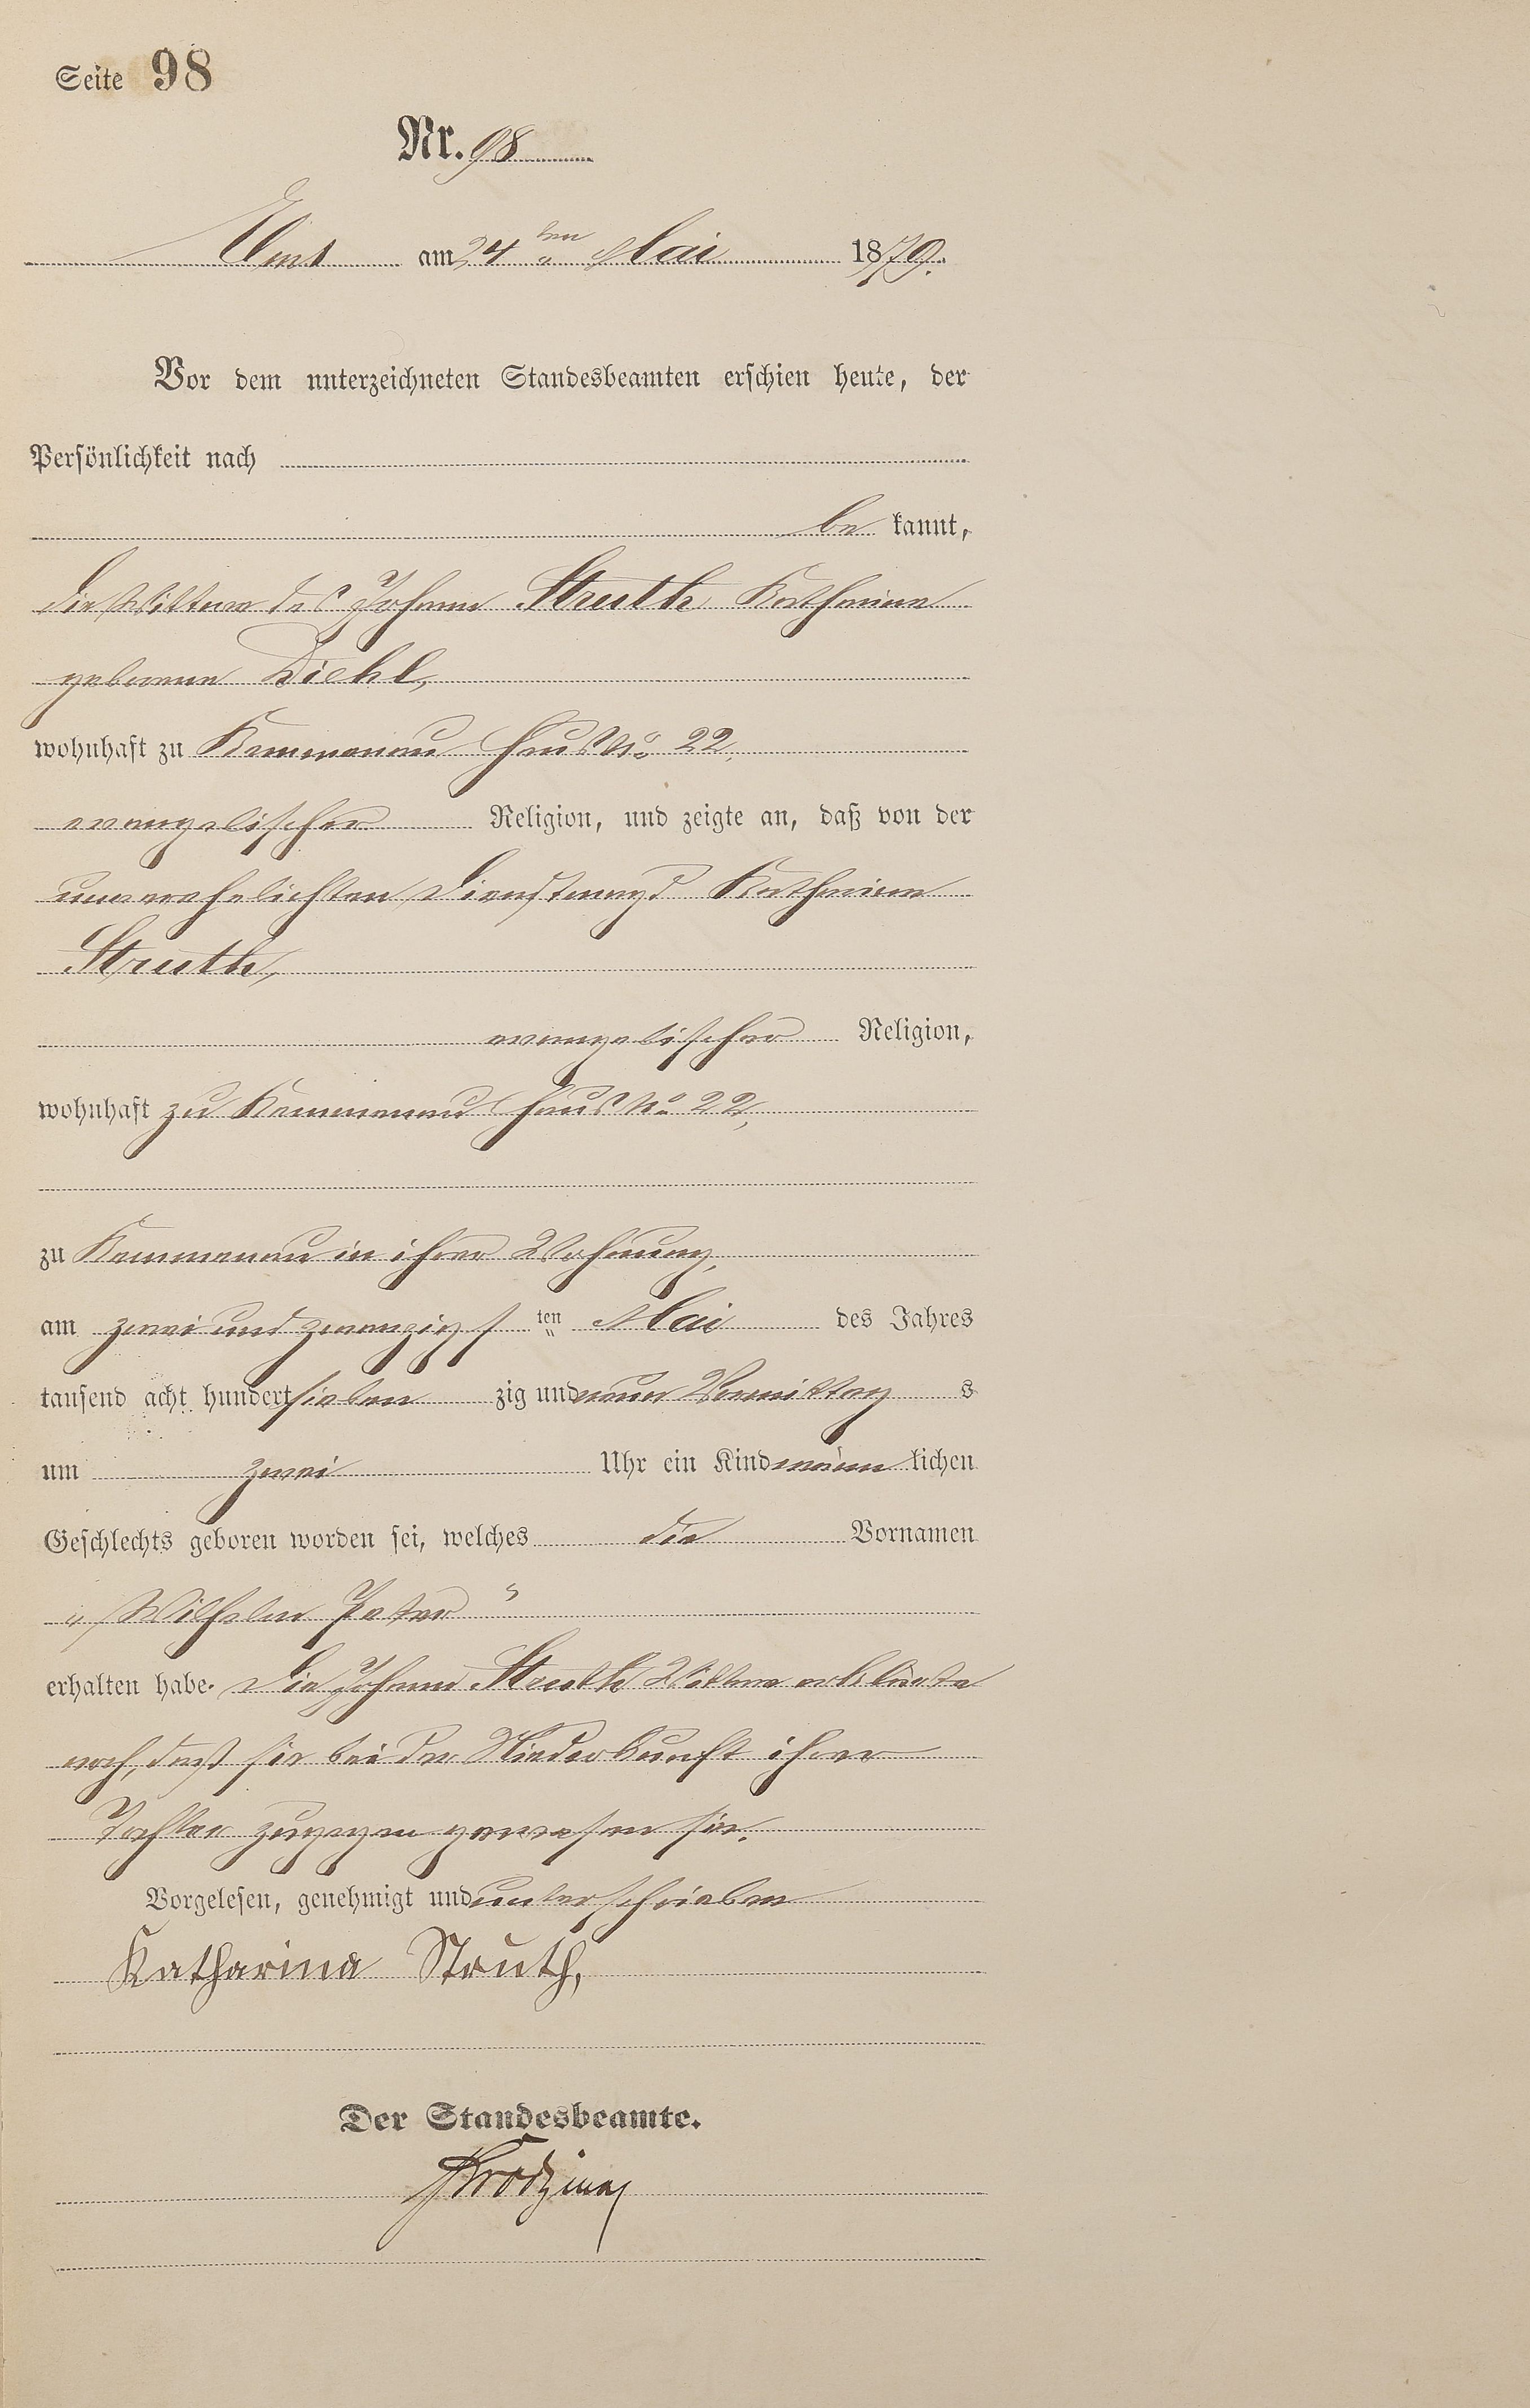 Seite 98
Nr. 98
Ems am 24ten Mai 1879.
Vor dem unterzeichneten Standesbeamten erschien heute, der
Persönlichkeit nach
be kannt,
die Wittwe des Johann Struth Katharina
geborene Diehl,
wohnhaft zu Kemmenau Haus No 22,
evangelischer Religion, und zeigte an, daß von der
unverehelichten Dienstmagd Katharina
Struth,
evangelischer Religion,
wohnhaft zu Kemmenau Haus No 22,
zu Kemmenau in ihrer Wohnung,
am zwei und zwanzigsten Mai des Jahres
tausend acht hundert sieben zig und neun Vormittag s
um zwei Uhr ein Kind männ lichen
Geschlechts geboren worden sei, welches die Vornamen
„Wilhelm Peter“
erhalten habe. Die Johann Struth Wittwe erklärte
noch, daß sie bei der Niederkunft ihrer
Tochter zugegen gewesen sei.
Vorgelesen, genehmigt und unterschrieben
Katharina Struth,
Der Standesbeamte.